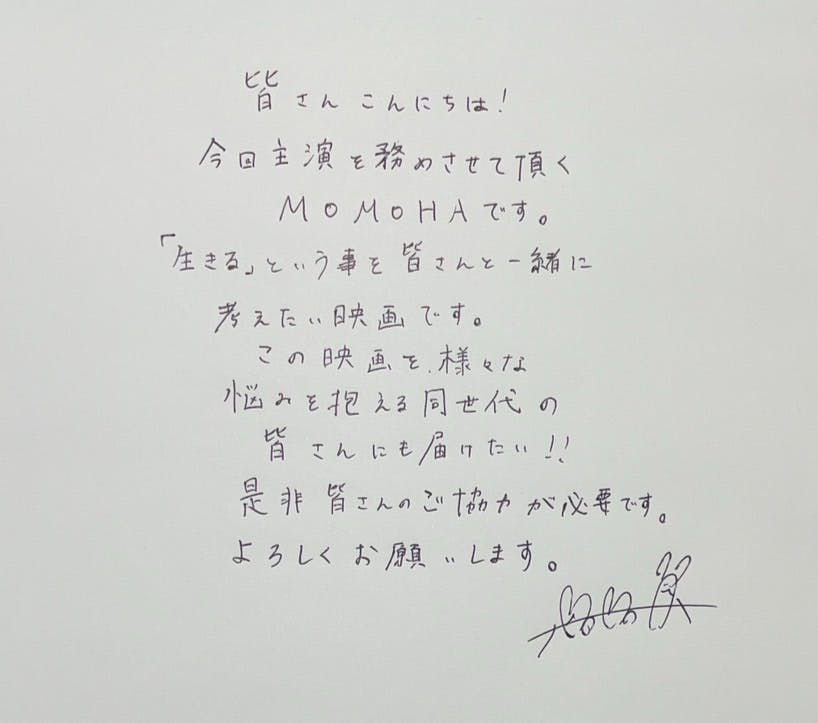 皆さんこんにちは!
今回主演を務めさせて頂く
MOMOHAです。
「生きる」という事を皆さんと一緒に
考えたい映画です。
この映画を、様々な
悩みを抱える同世代の
皆さんにも届けたい!!
是非皆さんのご協力が必要です。
よろしくお願いします。